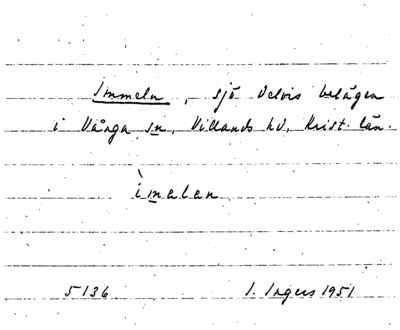 Immeln, sjö delvis belägen
i Vånga sn, Villands hd, Krist. län.
ìmelan
5136 I. Ingers 1951